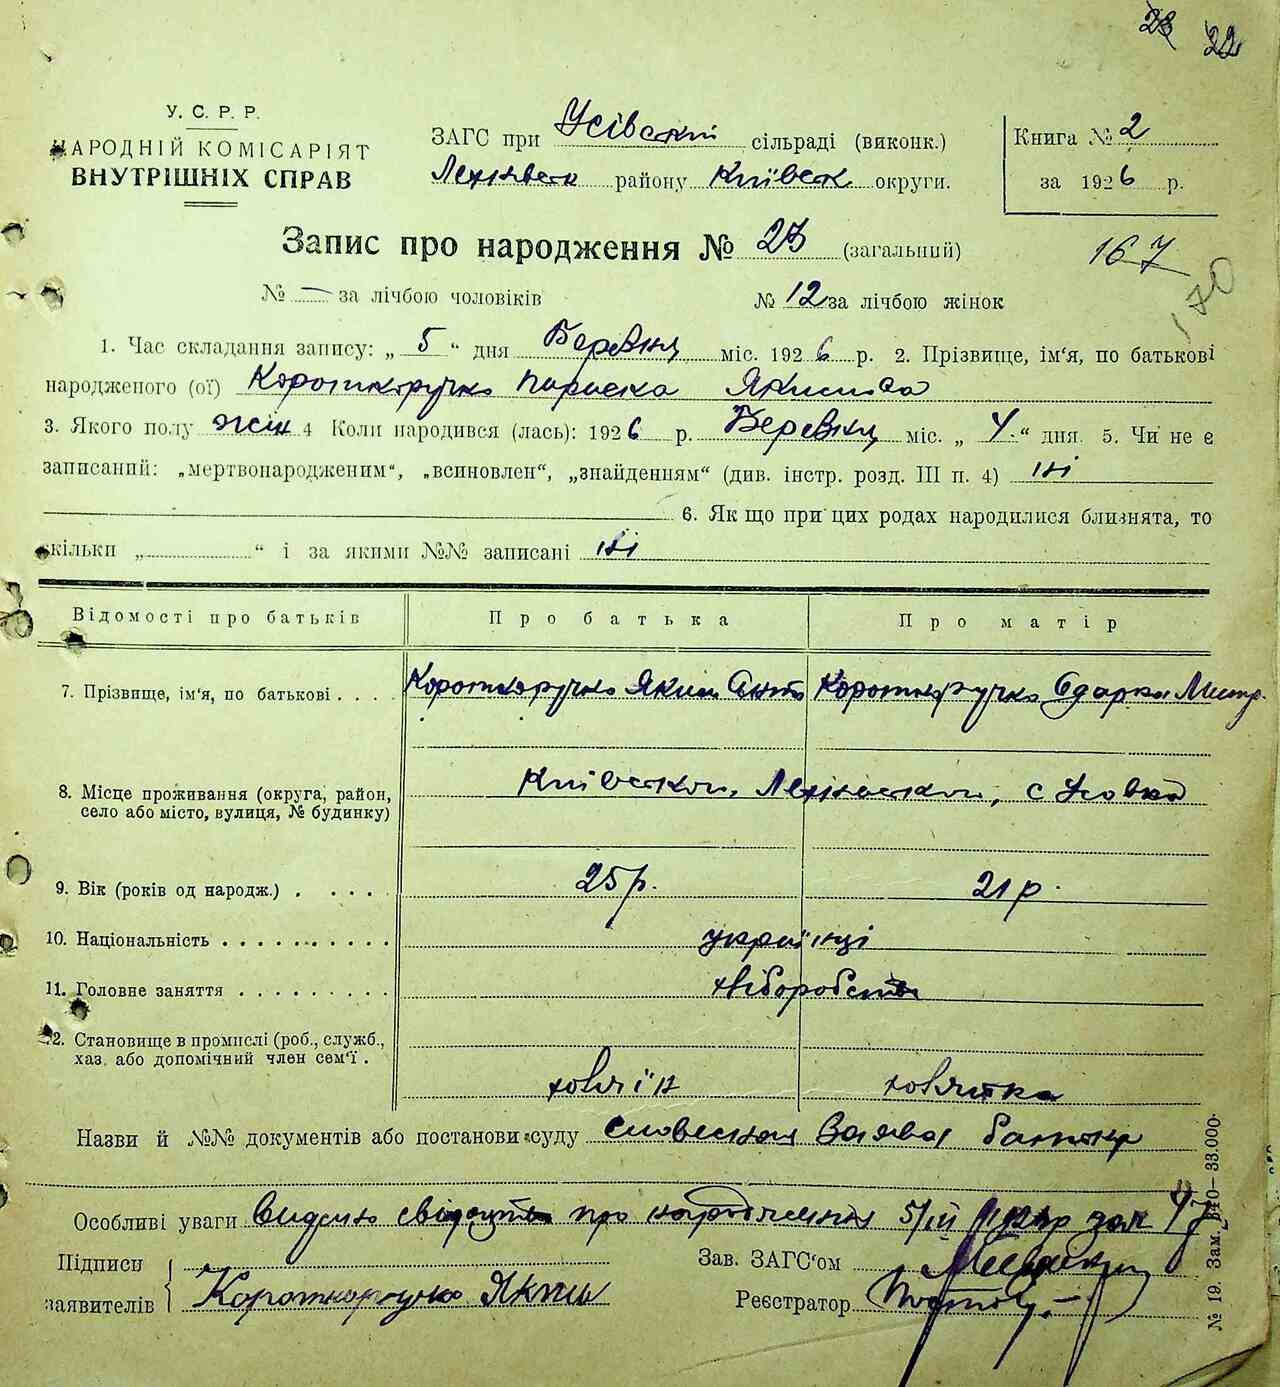 22
У. С. Р. Р.
НАРОДНІЙ КОМІСАРІЯТ
ВНУТРІШНІХ СПРАВ
ЗАГС при Усівській сільраді (виконк.)
району Київськ округи.
Книга № 2
за 1926 р.
Запис про народження № 23 (загальний)
167
170
№ — за лічбою чоловіків № 12 за лічбою жінок
1. Час складання запису: „ 5 “ дня Березня міс. 1926 р. 2. Прізвище, ім'я, по батькові
народженого (ої) Короткоручко Параска Якимова
3. Якого полу жін 4 Коли народився (лась): 1926 р. Березня міс. „ 4. “ дня. 5. Чи не є
записаний: „мертвонародженим“, „всиновлен“, „знайденням“ (див. інстр. розд. III п. 4) ні
6. Як що при цих родах народилися близнята, то
скільки „ “ і за якими №№ записані ні
Відомості про батьків Про батька Про матір
7. Прізвище, ім'я, по батькові . . . . Короткоручко Яким Анто Короткоручко Одарка Митр.
8. Місце проживання (округа, район,
село або місто, вулиця, № будинку)
Київськой, с Усовка
9. Вік (років од народж.) . . . . . 25 р. 21 р.
10. Національність . . . . . . . . . . українці
11. Головне заняття . . . . . . . . . хліборобство
12. Становище в промислі (роб., служб.,
хаз. або допомічний член сем'ї .
хазяїн хазяйка
Назви й №№ документів або постанови суду Словесная Заява батька
Особливі уваги Видано свідоцтво про народження 5/III за № 47
Підписи
заявителів Короткоручко Яким
Зав. ЗАГС'ом
Реєстратор
№ 19. Зам. 310—33.000